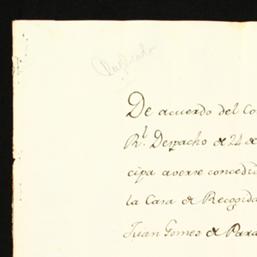 Duplicado
De acuerdo del Co
Rl. Despacho de 24 de
cipa averse concedid
la Casa de Recogida
Juan Gomes de Para